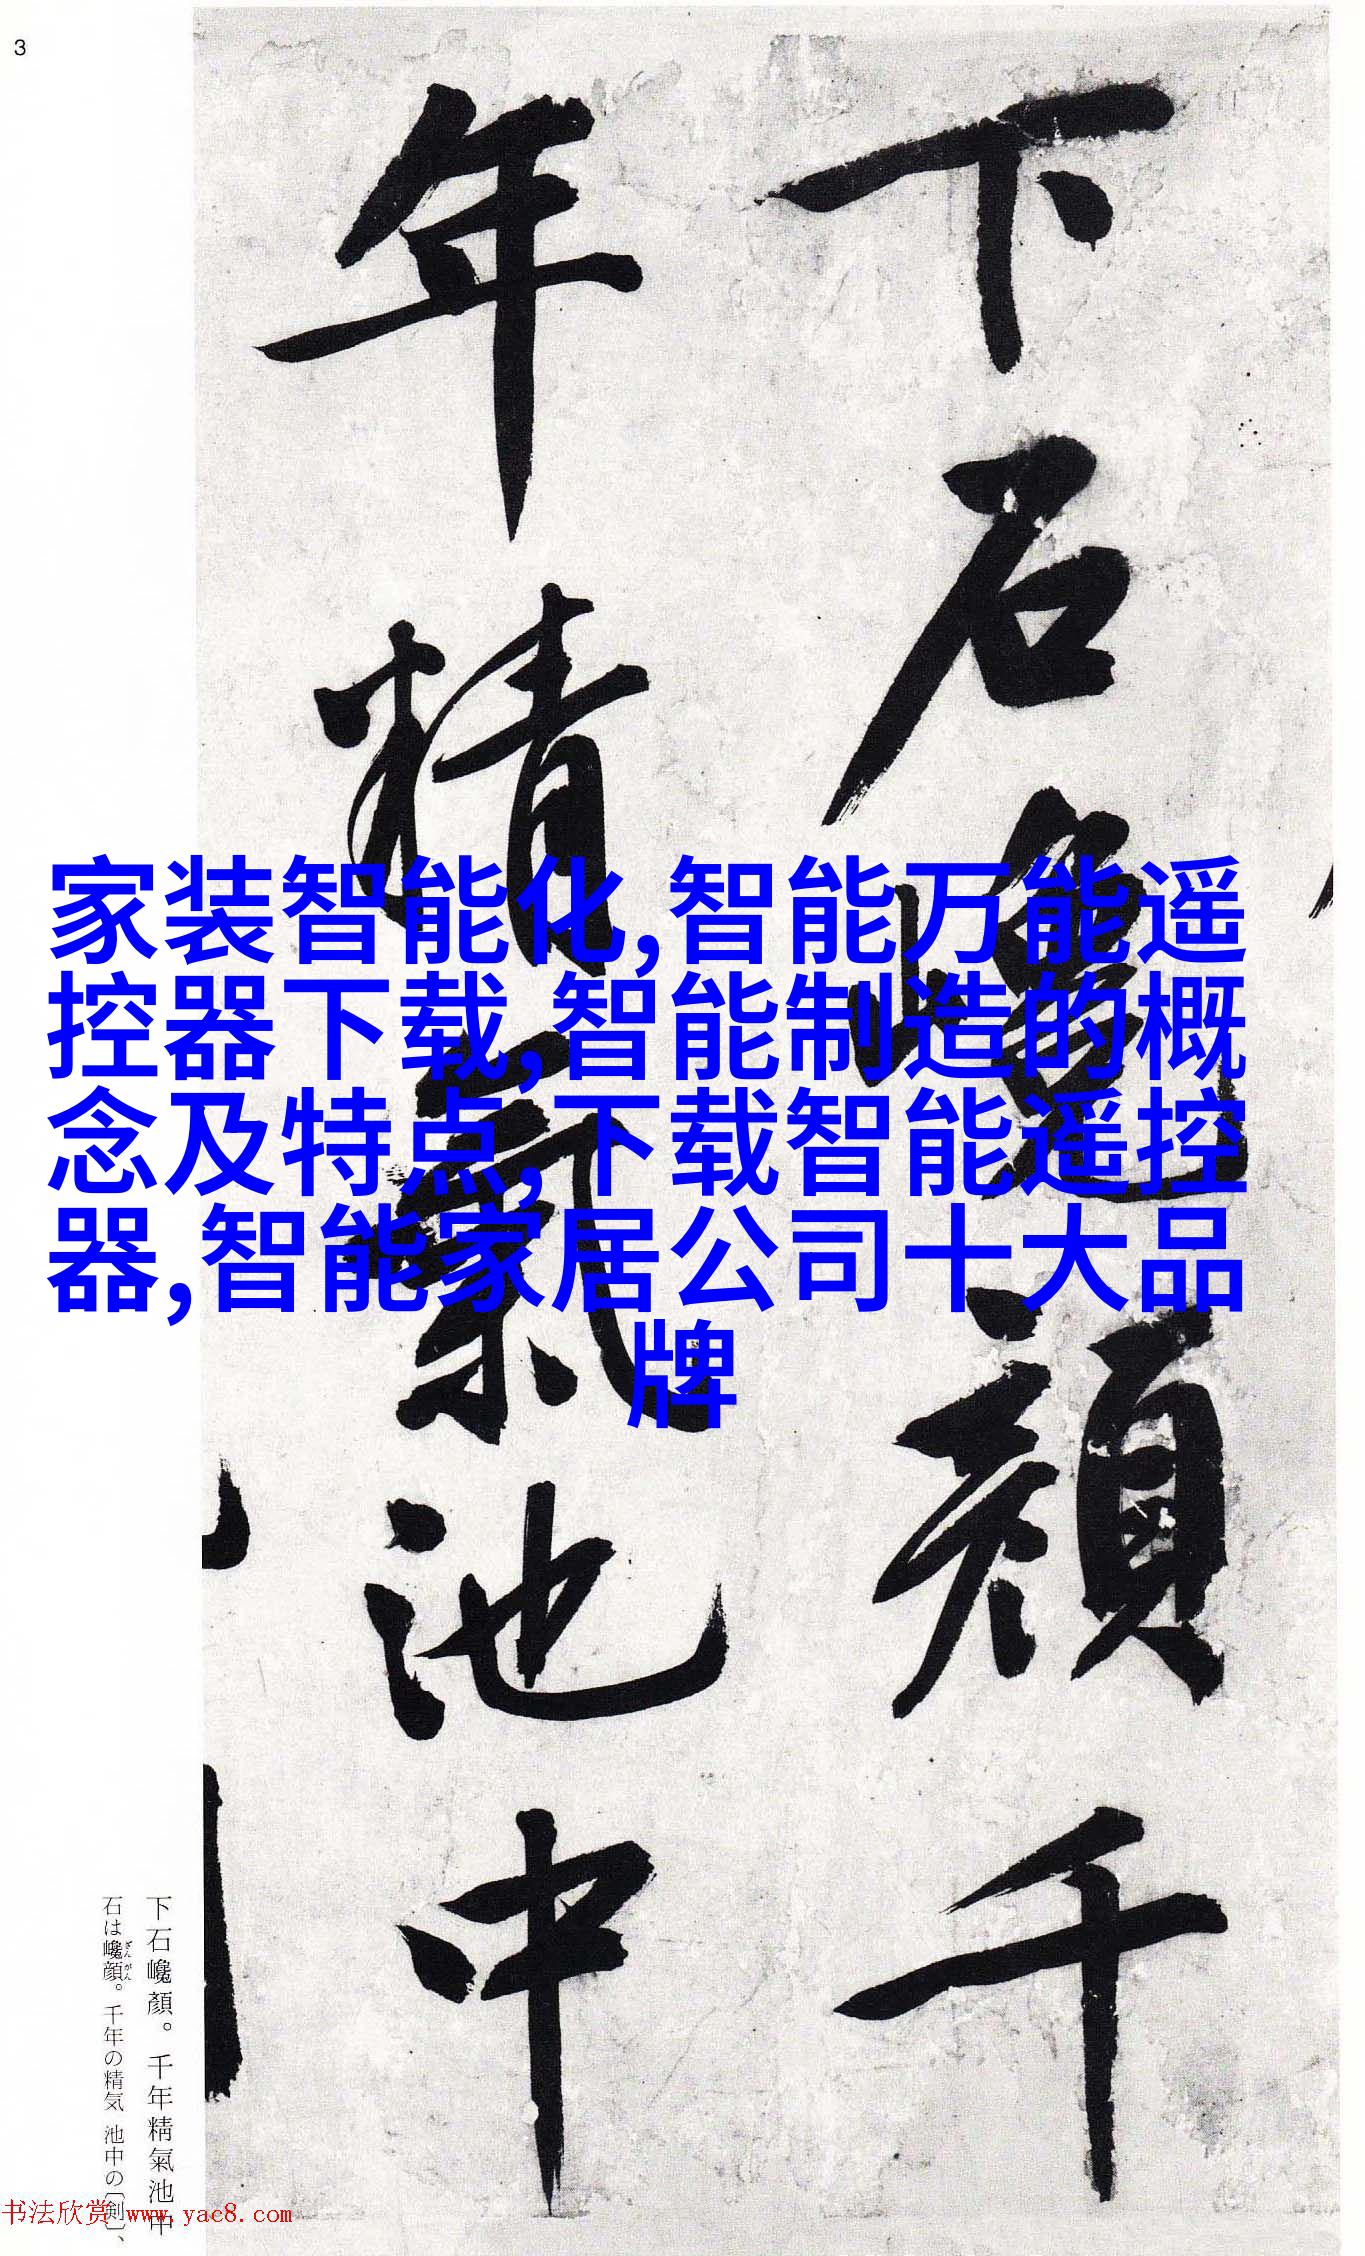 3
下石巉顏千
年精氣池中
家装智能化,智能万能遥
控器下载,智能制造的概
念及特点,下载智能遥控
器,智能家居公司十大品
牌
下石巉顏。千年精氣池中
石は巉顔。千年の精気 池中の〔剣〕、
ざんがん
书法欣赏 www.yac8.com